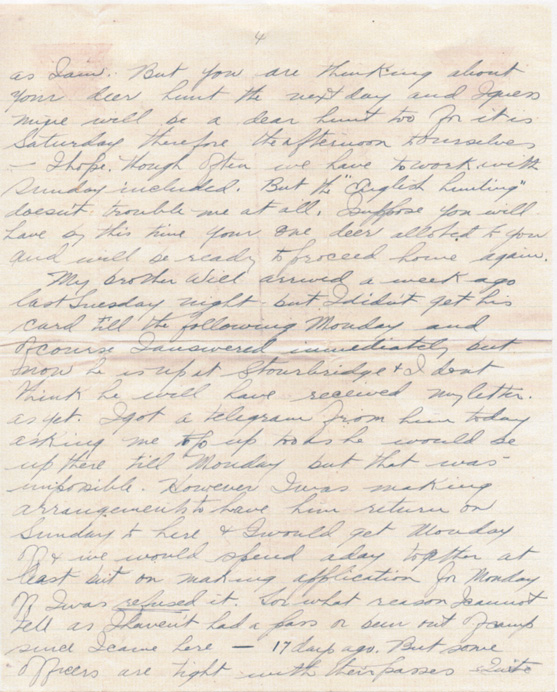 4
as I am. But you are thinking about
your deer hunt the next day and I guess
mine will be a dear hunt too for it is
Saturday therefore the afternoon to ourselves
– I hope. Though often we have to work with
Sunday included. But the "English hunting"
doesn't trouble me at all. I suppose you will
have by this time your one deer allowed to you
and will be ready to proceed home again.
My brother Will arrived a week ago
last Tuesday night but I didn't get his
card till the following Monday and
of course I answered immediately but
now he is up at Stourbridge & I dont
think he will have received my letter.
as yet. I got a telegram from him today
asking me to go up to as he would be
up there till Monday but that was
impossible. However I was making
arrangements to have him return on
Sunday to here & I would get Monday
off & we would spend a day together at
least but on making application for Monday
off I was refused it for what reason I cannot
tell as I haven't had a pass or been out of camp
since I came here — 17 days ago. But some
officers are tight with their passes Quite